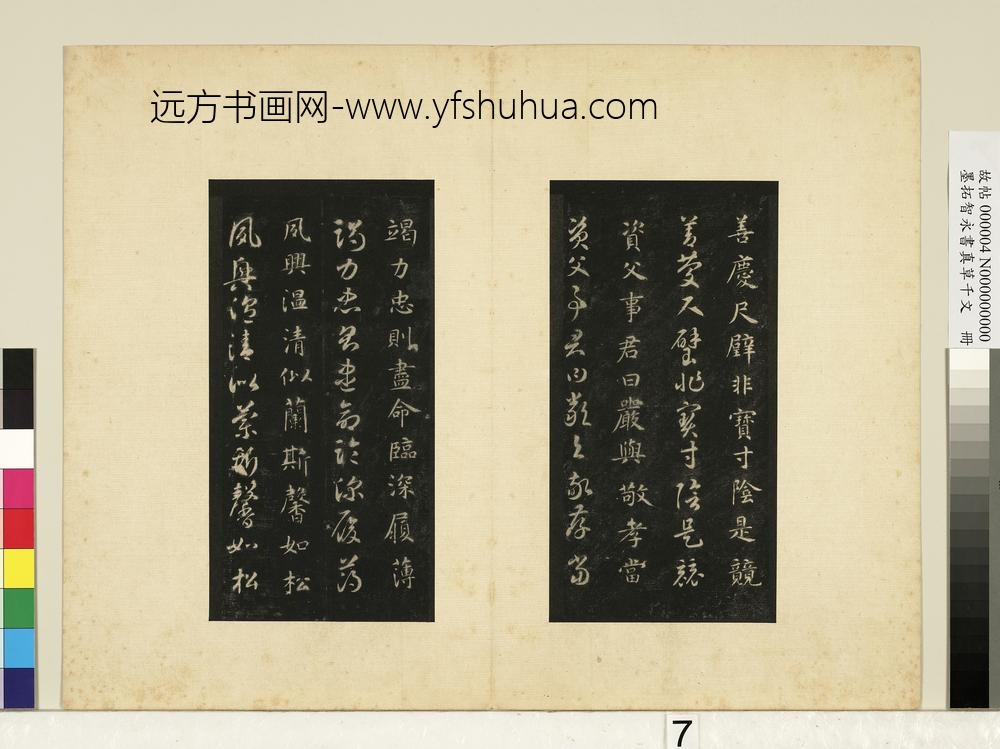 远方书画网-www.yfshuhua.com
善慶尺璧非寶寸陰是競
善慶尺璧非寶寸陰是競
資父事君曰嚴與敬孝當
資父事君曰嚴與敬孝當
竭力忠則盡命臨深履薄
竭力忠則盡命臨深履薄
夙興温清似蘭斯馨如松
夙興温清似蘭斯馨如松
故帖 000004 N000000000
墨拓智永書真草千文 冊
7